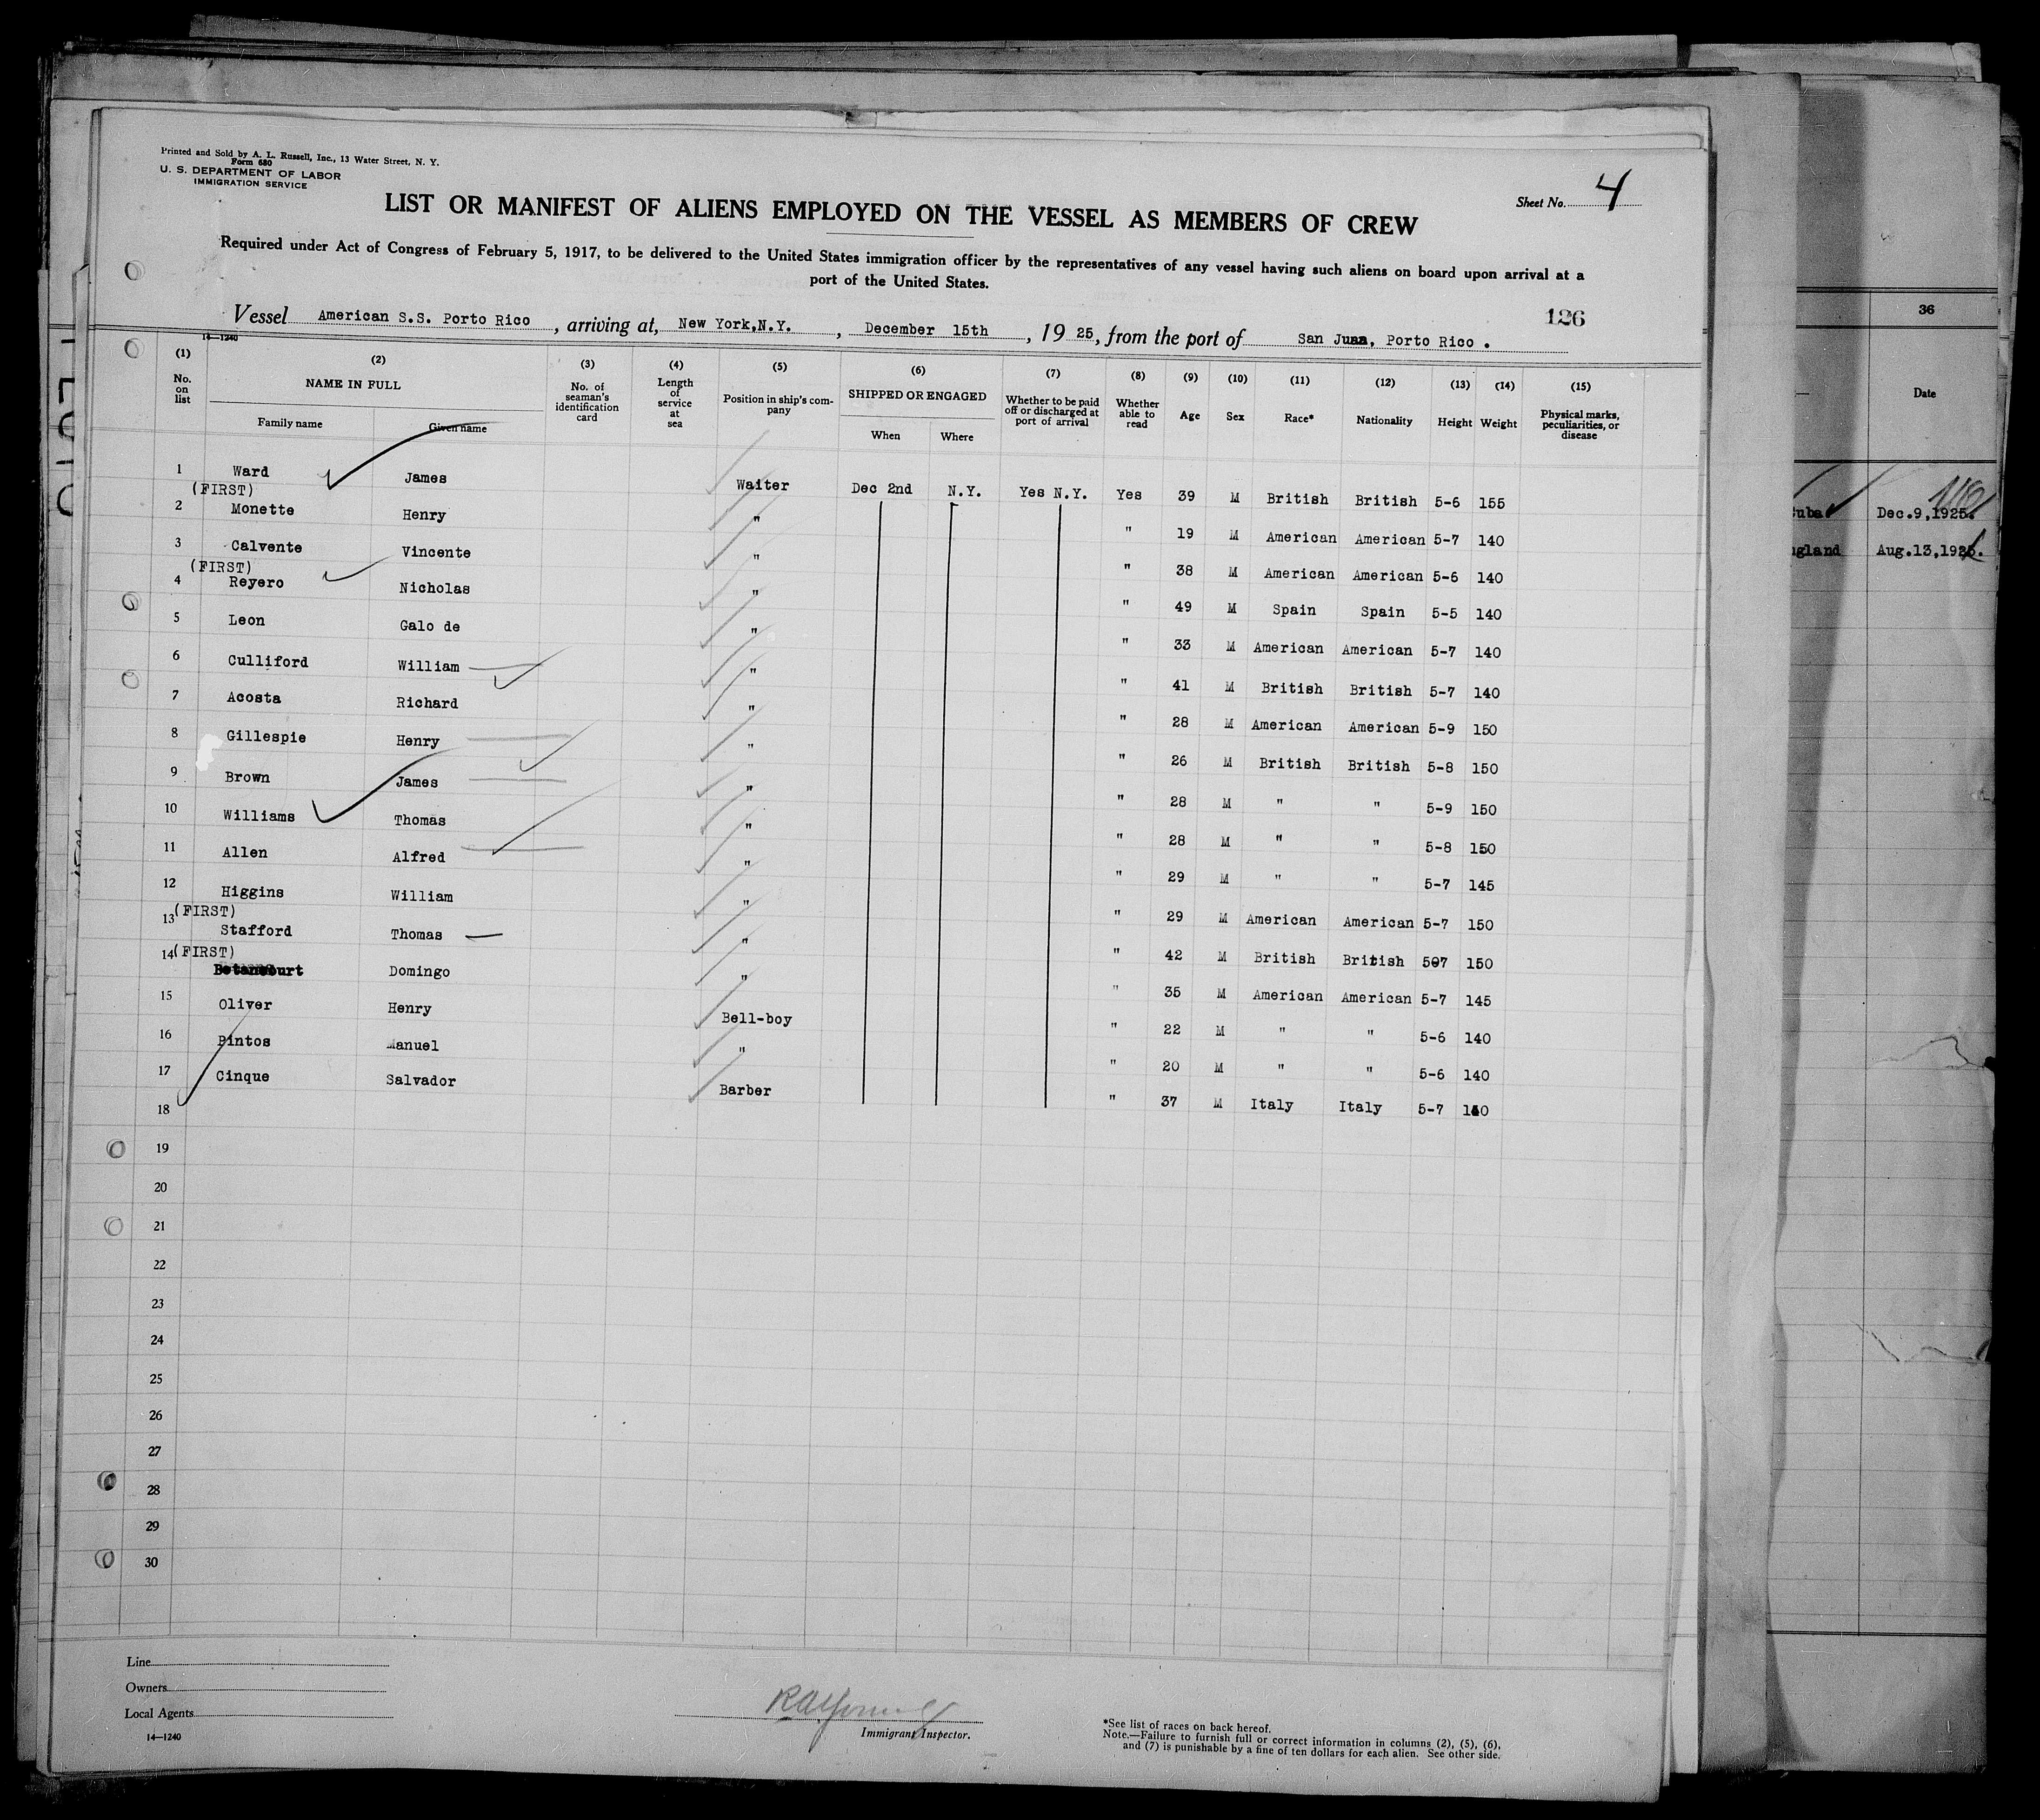 Printed and Sold by A. L. Russell, Inc., 13 Water Street, N. Y.
Form 680
U. S. DEPARTMENT OF LABOR
IMMIGRATION SERVICE
Sheet No. 4
LIST OR MANIFEST OF ALIENS EMPLOYED ON THE VESSEL AS MEMBERS OF CREW
Required under Act of Congress of February 5, 1917, to be delivered to the United States immigration officer by the representatives of any vessel having such aliens on board upon arrival at a
port of the United States.
126
Vessel American S.S. Porto Rico, arriving at, New York,N.Y., December 15th, 1925, from the port of San Juan, Porto Rico.
14—1240
(1) (2) (3) (4) (5) (6) (7) (8) (9) (10) (11) (12) (13) (14) (15)
No. on list NAME IN FULL Family name Given name No. of seaman's identification card Length of service at sea Position in ship's company SHIPPED OR ENGAGED When Where Whether to be paid off or discharged at port of arrival Whether able to read Age Sex Race* Nationality Height Weight Physical marks, peculiarities, or disease
1 Ward James Waiter Dec 2nd N.Y. Yes N.Y. Yes 39 M British British 5-6 155
(FIRST)
2 Monette Henry " " 19 M American American 5-7 140
3 Calvente Vincente " " 38 M American American 5-6 140
(FIRST)
4 Reyero Nicholas " " 49 M Spain Spain 5-5 140
5 Leon Galo de " " 33 M American American 5-7 140
6 Culliford William " " 41 M British British 5-7 140
7 Acosta Richard " " 28 M American American 5-9 150
8 Gillespie Henry " " 26 M British British 5-8 150
9 Brown James " " 28 M " " 5-9 150
10 Williams Thomas " " 28 M " " 5-8 150
11 Allen Alfred " " 29 M " " 5-7 145
12 Higgins William " " 29 M American American 5-7 150
(FIRST)
13 Stafford Thomas " " 42 M British British 507 150
(FIRST)
14 Betancourt Domingo " " 35 M American American 5-7 145
15 Oliver Henry Bell-boy " 22 M " " 5-6 140
16 Pintos Manuel " " 20 M " " 5-6 140
17 Cinque Salvador Barber " 37 M Italy Italy 5-7
18
19
20
21
22
23
24
25
26
27
28
29
30
Line
Owners
Local Agents
14—1240
Immigrant Inspector.
*See list of races on back hereof.
Note.—Failure to furnish full or correct information in columns (2), (5), (6),
and (7) is punishable by a fine of ten dollars for each alien. See other side.
36
Date
uba Dec.9,1925.
ngland Aug.13,192